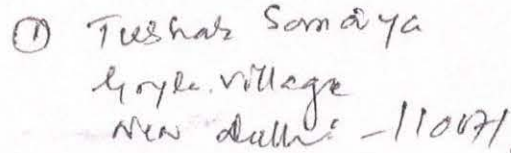 ① Tushar Somaiya
Goyla Village
New Delhi - 110071